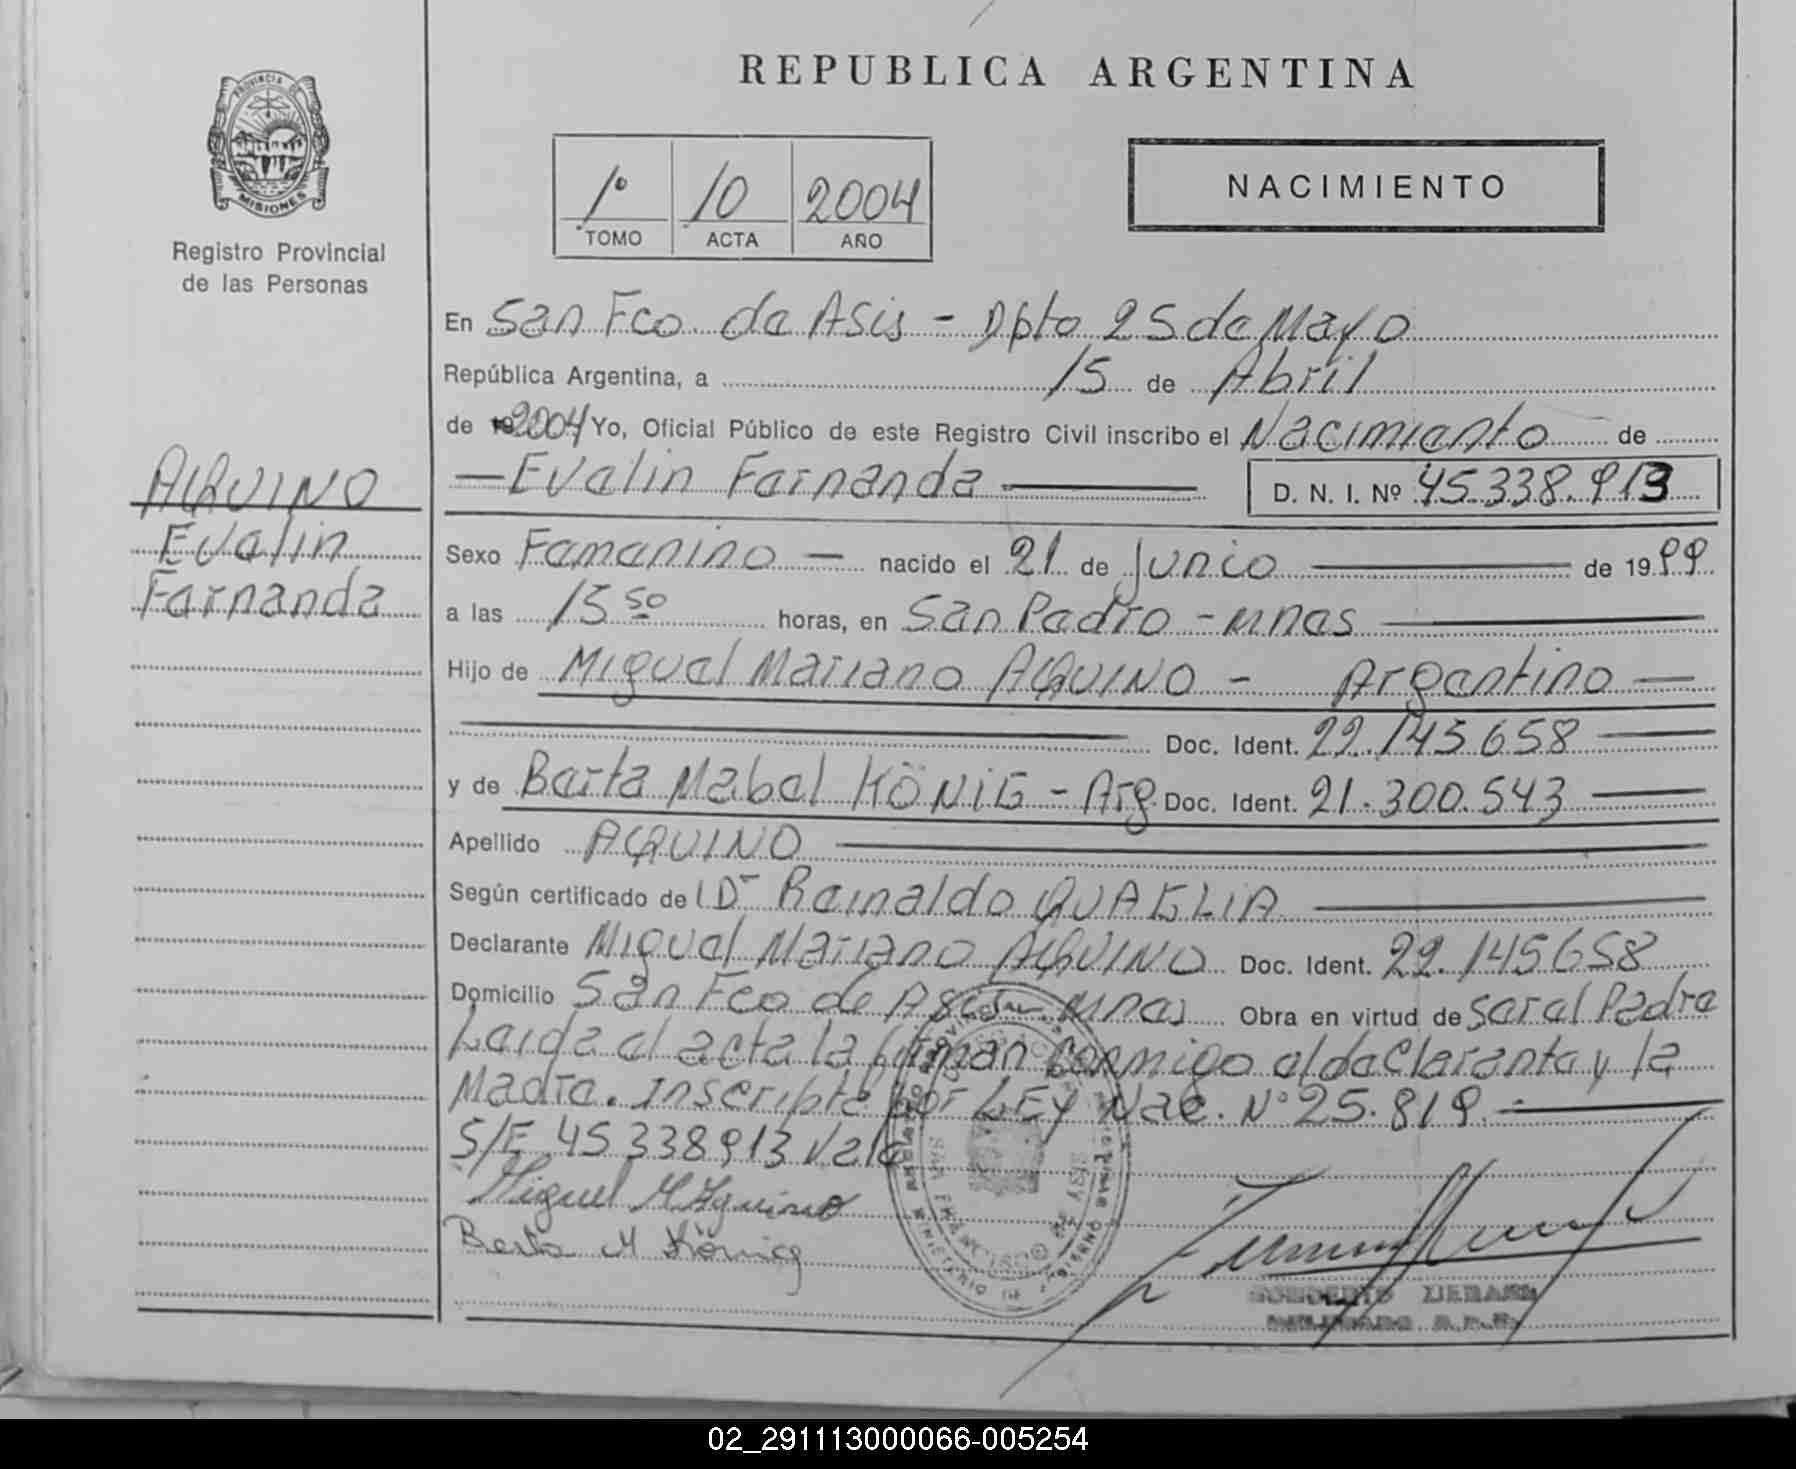 PROVINCIA DE
MISIONES
Registro Provincial
de las Personas
AQUINO
Evelin
Fernanda
REPUBLICA ARGENTINA
1º 10 2004
TOMO ACTA AÑO
NACIMIENTO
En San Fco. de Asis - Dpto 25 de Mayo
República Argentina, a 15 de Abril
de 2004 Yo, Oficial Público de este Registro Civil inscribo el Nacimiento de
— Evelin Fernanda — D. N. I. Nº 45.338.913
Sexo Femenino — nacido el 21 de Junio — de 1999
a las 15 50 horas, en San Pedro - Mnes —
Hijo de Miguel Mariano AQUINO - Argentino —
Doc. Ident. 22.145.658 —
y de Berta Mabel KÖNIG - Arg. Doc. Ident. 21.300.543 —
Apellido AQUINO —
Según certificado de Dr Reinaldo QUAGLIA —
Declarante Miguel Mariano AQUINO Doc. Ident. 22.145658
Domicilio San Fco de Asis Mnes Obra en virtud de ser el Padre
Leida el acta la firman conmigo el declarante y la
Madre. Inscripta por LEY Nac. Nº 25.819. —
S/E 45338913 Vale
Miguel M Aquino
Berta M König
SAN FRANCISCO DE ASIS
MINISTERIO DE GOBIERNO
02_291113000066-005254